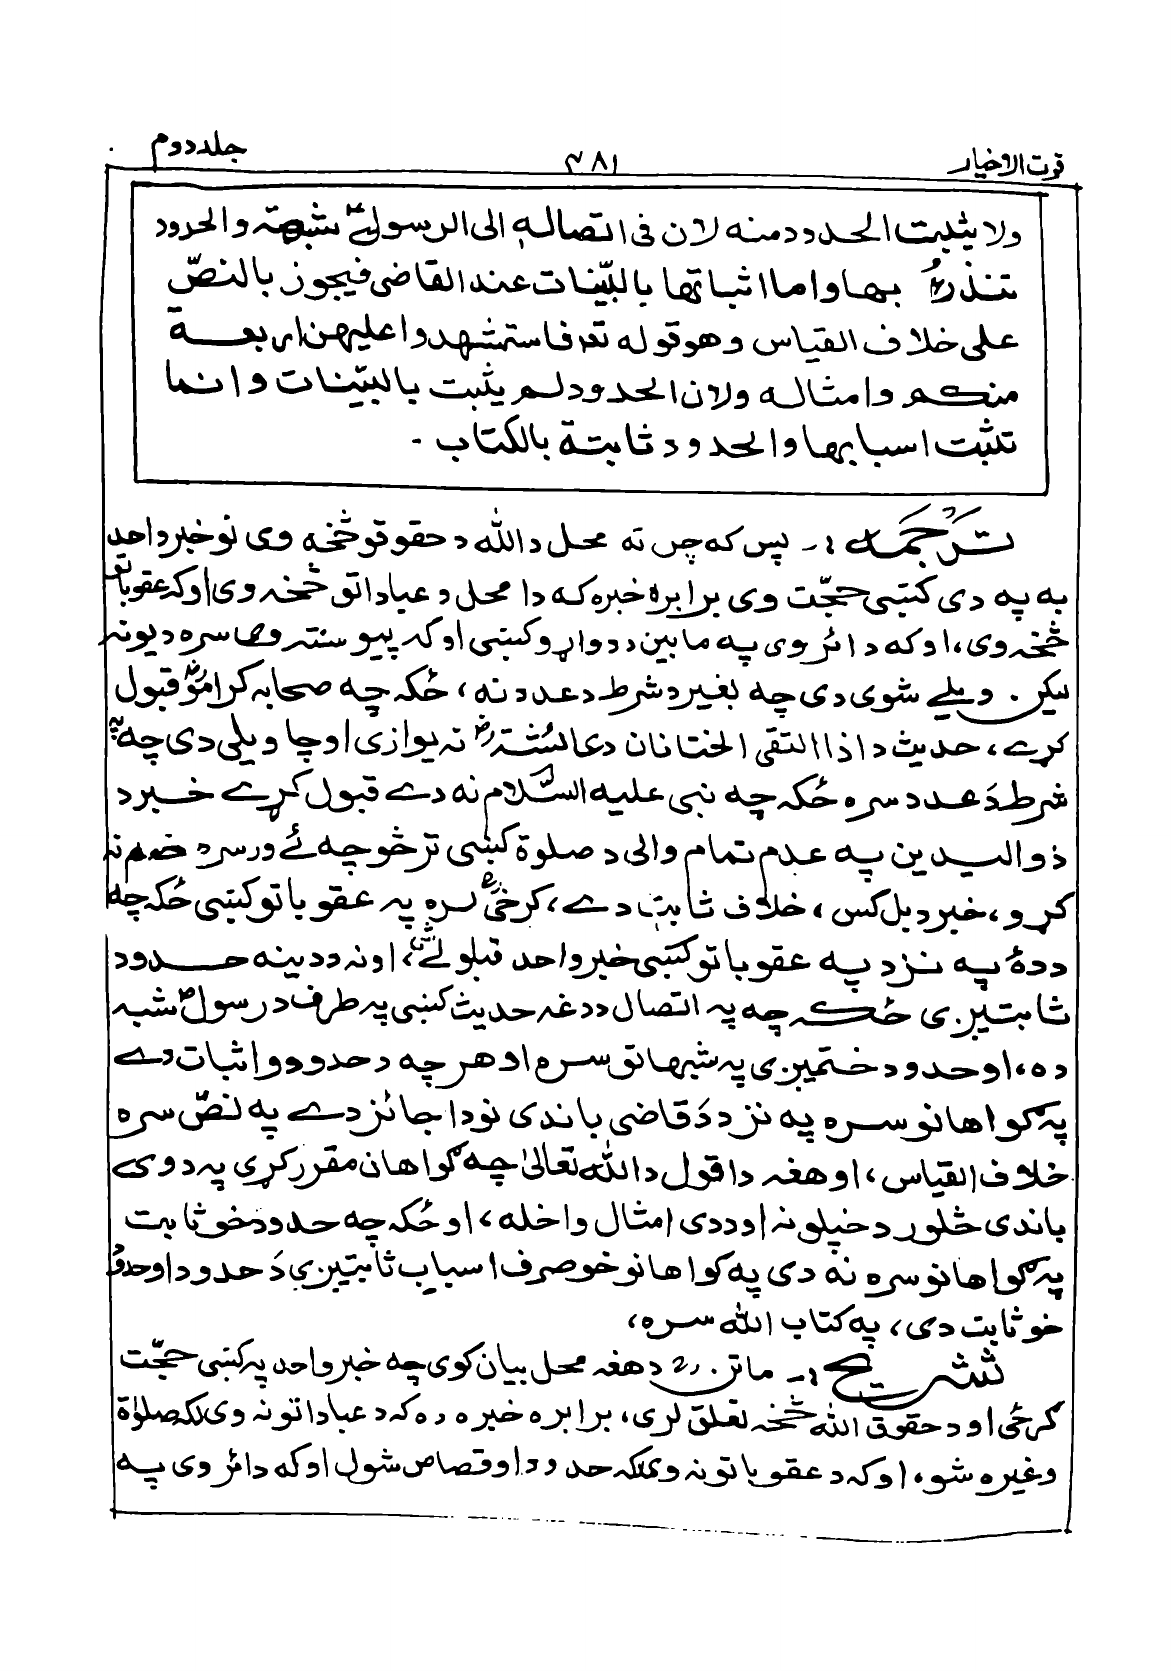 قرت الاخیار ۴۸۱ جلد دوم
ولا یثبت الحدود منه لان فی اتصاله الی الرسولؐ شبهة والحدود
تندرئ بها واما اثباتها بالبیّنات عند القاضی فیجوز بالنصّ
علی خلاف القیاس وهو قوله تعٰ فاستشهدوا علیهن اربعة
منکم وامثاله ولان الحدود لم یثبت بالبیّنات وانما
تثبت اسبابها والحدود ثابتة بالکتاب -
ترجمه :- پس که چرته محل د الله د حقوقو څخه وی نو خبر د احد
به په دی کښی حجّت وی برابره خبره که دا محل د عباداتو څخه وی او که عقوباتو
څخه وی، او که دائر وی په مابین د دواړو کښی او که پیوسته وی سره د یو نه
ویلے شوی دی چه بغیر د شرط د عدد نه، ځکه چه صحابه کرامو قبول
کړے، حدیث د اذا التقی الختانان د عائشۃ نه یوازی او چا ویلی دی چه په
شرط دَ عدد سره ځکه چه نبی علیه السّلام نه دے قبول کړے خبر د
ذوالیدین په عدم تمام والی د صلوة کښی تر څو چه ئے ورسره ضم نه
کړو، خبر د بل کس، خلاف ثابت دے، کرخیؒ سره په عقوباتو کښی ځکه چه
د دۀ په نزد په عقوباتو کښی خبر واحد قبلولے، او نه د دینه حدود
ثابتیږی ځکه چه په اتصال د دغه حدیث کښی په طرف د رسولؐ شبه
ده، او حدود ختمیږی په شبهاتو سره او هر چه د حدودو اثبات دے
په ګواهانو سره په نزد دَ قاضی باندی نو دا جائز دے په نصّ سره
خلاف القیاس، او هغه دا قول د الله تعالیٰ چه ګواهان مقرر کړی په دوی
باندی څلور د خپلو نه او د دی امثال واخله، او ځکه چه حدود خو ثابت
په ګواهانو سره نه دی په ګواهانو خو صرف اسباب ثابتیږی دَ حدود او حدود
خو ثابت دی، په کتاب الله سره،
تشریح :- ماتن د هغه محل بیان کوی چه خبر واحد په کښی حجّت
ګرځی او د حقوق الله څخه تعلق لری، برابره خبره ده که د عباداتو نه وی لکه صلوٰة
وغیره شو، او که د عقوباتو نه وی لکه حدود او قصاص شول او که دائر وی په